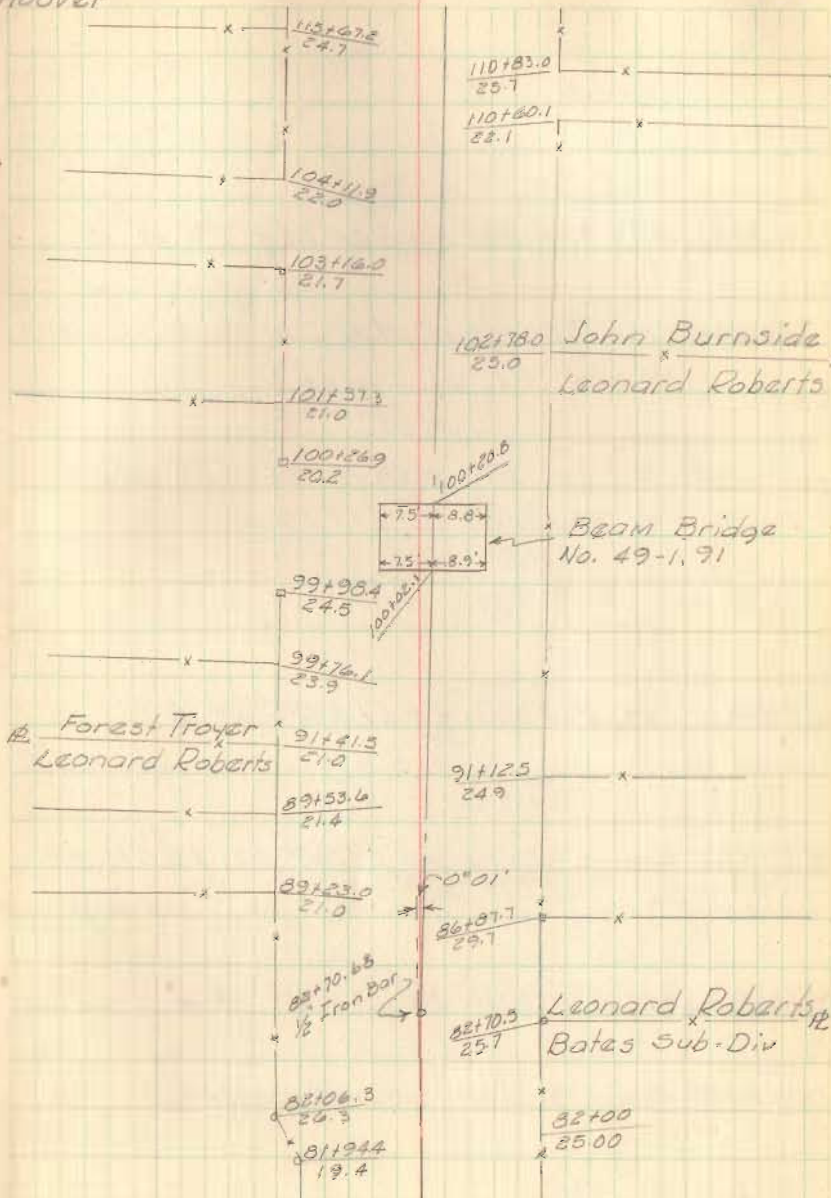 115+67.2
24.7
110+83.0
25.7
110+60.1
22.1
104+11.9
22.0
103+16.0
21.7
102+78.0 John Burnside
25.0 Leonard Roberts
101+37.3
21.0
100+26.9
20.2
100+20.8
7.5' 8.8'
Beam Bridge
No. 49-1, 91
7.5' 8.9'
100+02.1
99+98.4
24.5
99+76.1
23.9
PL Forest Troyer
Leonard Roberts
91+41.5
21.0
91+12.5
24.9
89+53.6
21.4
0°01'
89+23.0
21.0
86+87.7
29.7
82+70.68
½" Iron Bar
82+70.5
25.7
Leonard Roberts PL
Bates Sub-Div
82+06.3
26.3
82+00
25.00
81+94.4
19.4